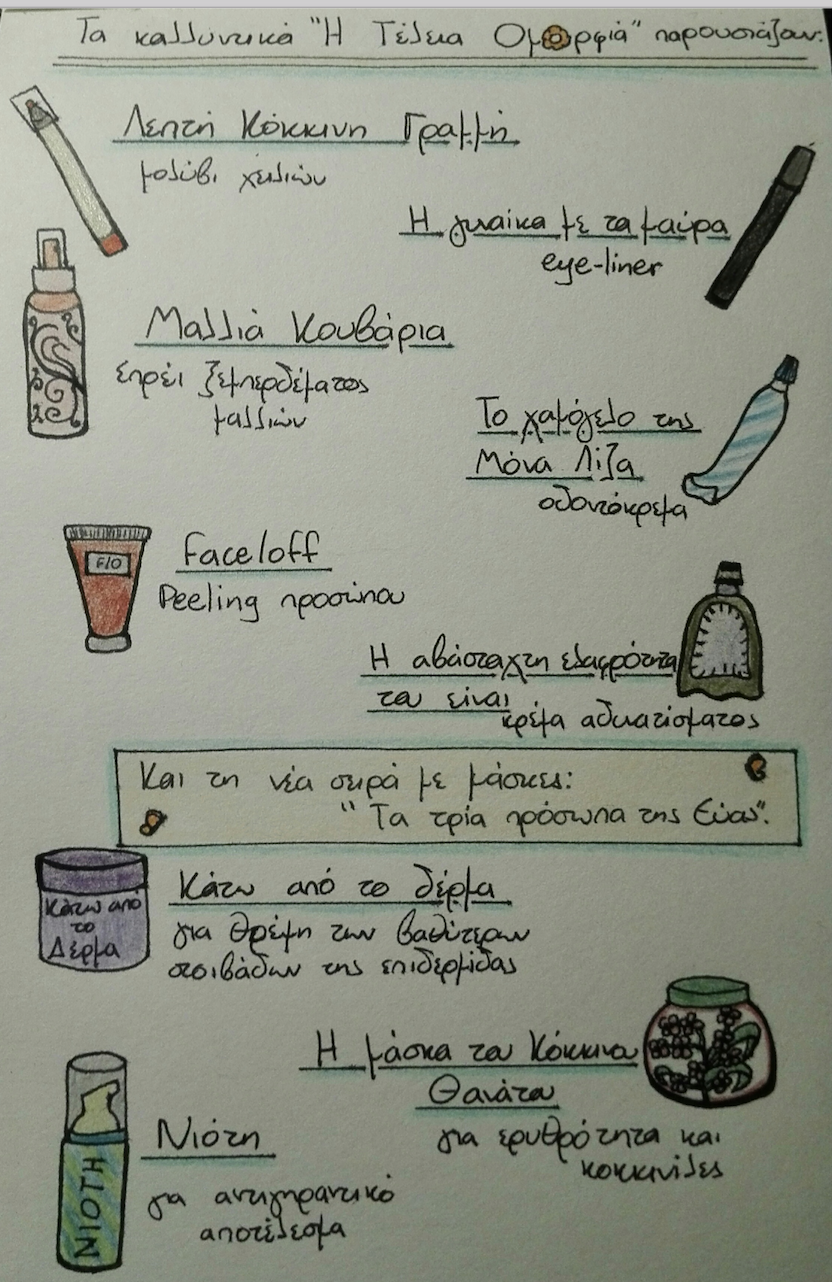 Τα καλλυντικά "Η Τέλεια Ομορφιά" παρουσιάζουν:
Λεπτή Κόκκινη Γραμμή
μολύβι χειλιών
Η γυναίκα με τα μαύρα
eye-liner
Μαλλιά Κουβάρια
σπρέι ξεμπερδέματος
μαλλιών
Το χαμόγελο της
Μόνα Λίζα
οδοντόκρεμα
Face/off
F/O
Peeling προσώπου
Η αβάσταχτη ελαφρότητα
του είναι
κρέμα αδυνατίσματος
Και τη νέα σειρά με μάσκες:
"Τα τρία πρόσωπα της Εύας".
Κάτω από το δέρμα
Κάτω από
το
Δέρμα
για θρέψη των βαθύτερων
στοιβάδων της επιδερμίδας
Η μάσκα του Κόκκινου
Θανάτου
για ερυθρότητα και
κοκκινίλες
Νιότη
ΝΙΟΤΗ
για αντιγηραντικό
αποτέλεσμα